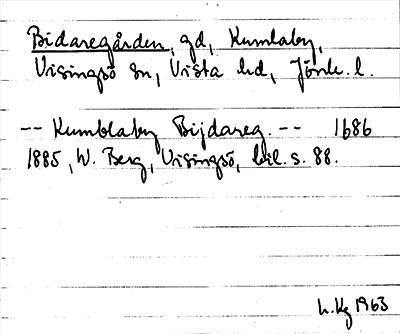 Bidaregården, gd, Kumlaby,
Visingsö sn, Vista hd, Jönk. l.
-- Kumblaby Bijdareg. -- 1686
1885, W. Berg, Visingsö, bil. s. 88.
L. Hg 1963